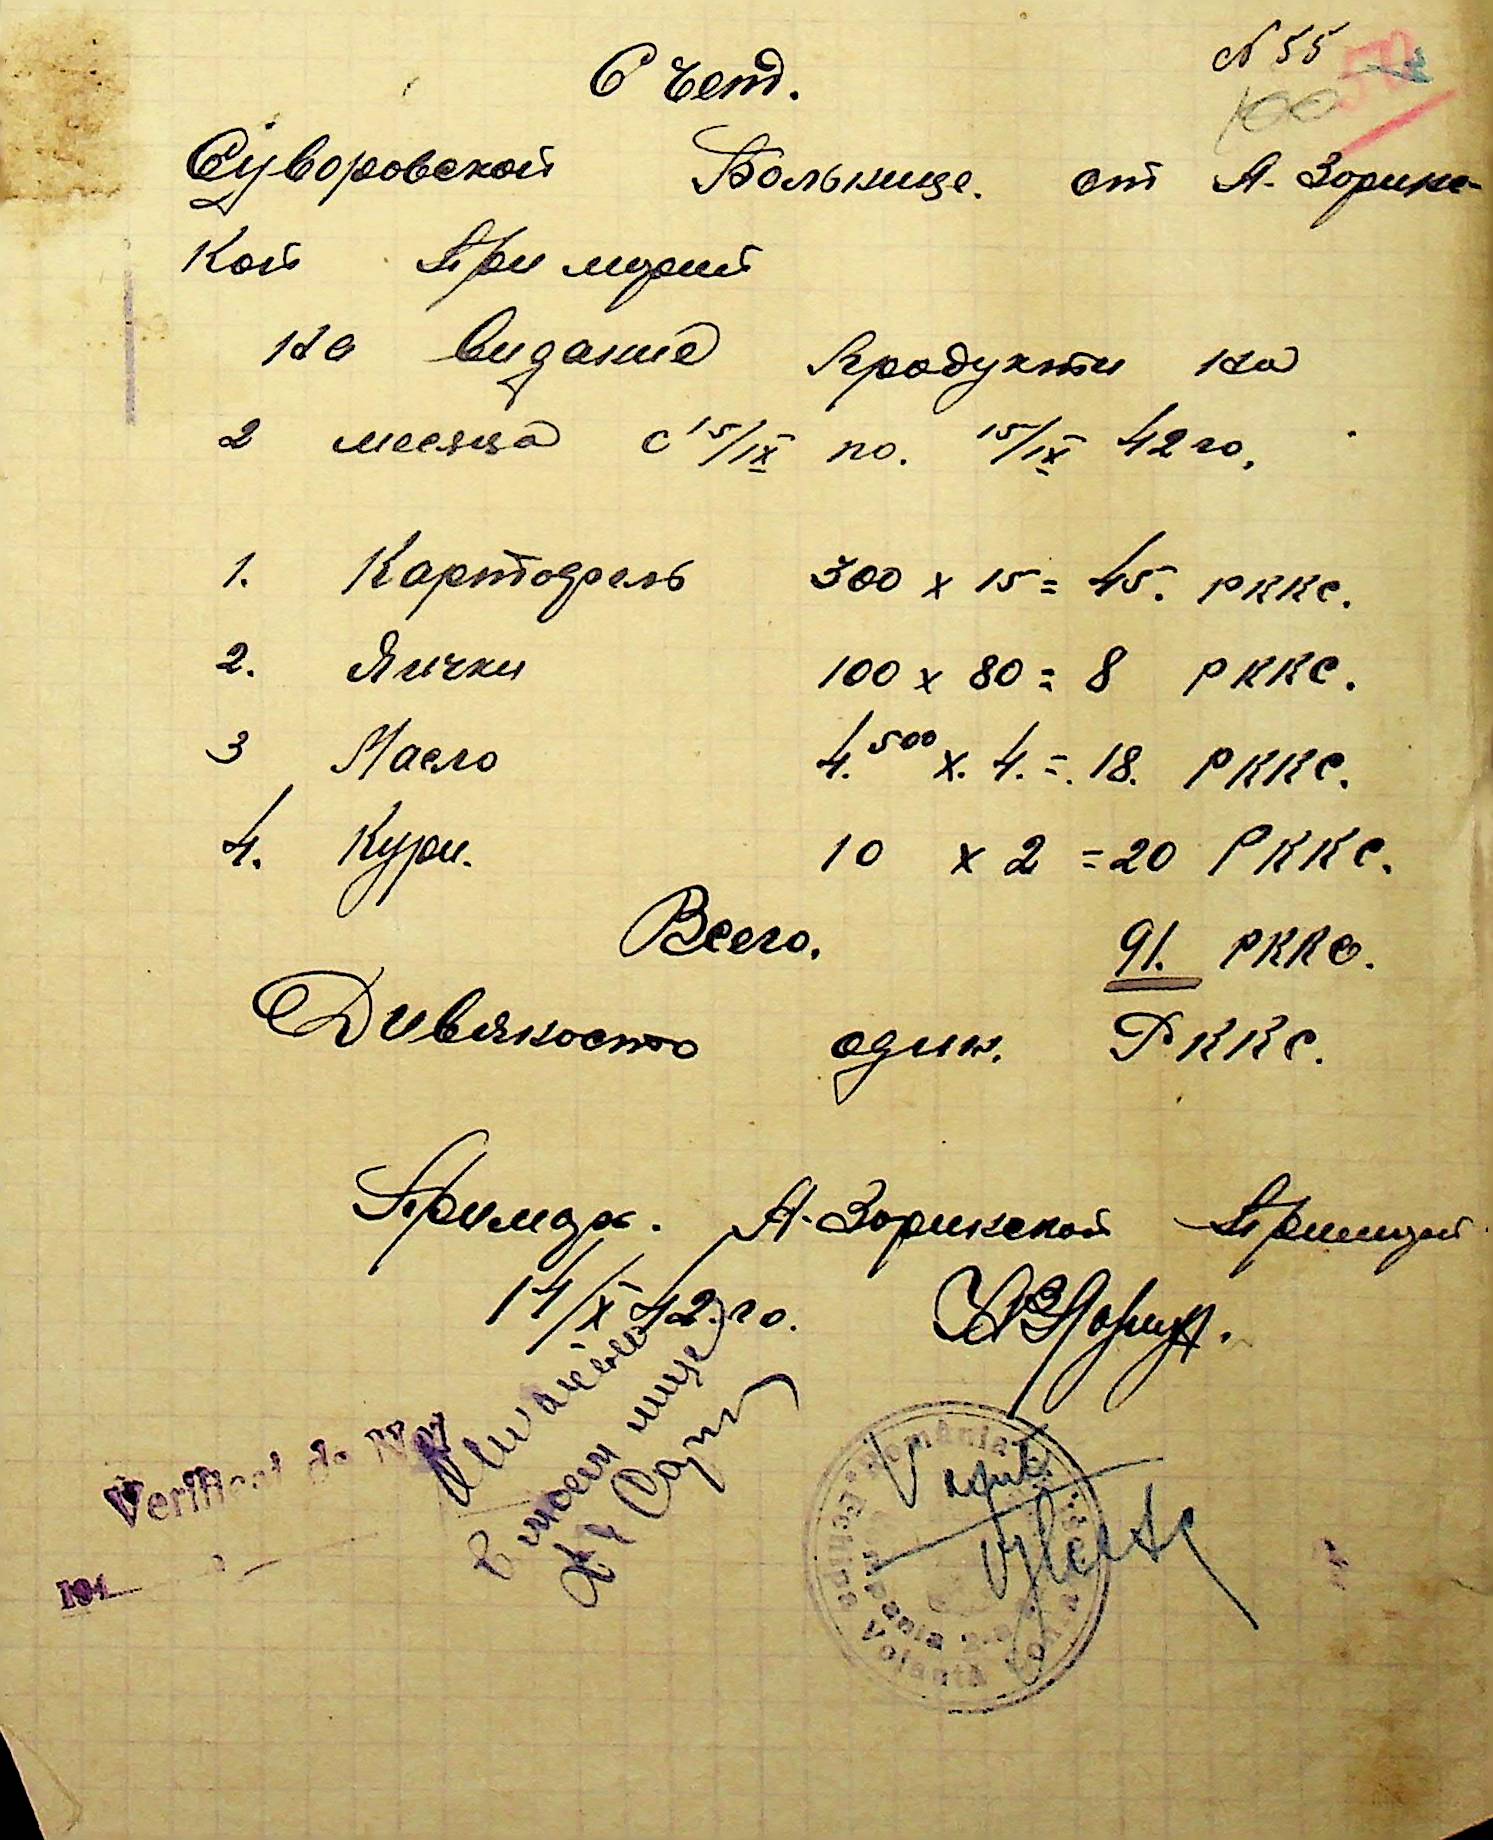 № 55
100
Счет.
Суворовской Больнице. от А-Зоринс-
кой Примурий
На видание продукти на
2 месяца с 15/IX по. 15/IX 42 го,
1. Картофель 300 x 15 = 45. РККС.
2. Яички 100 x 80 = 8 РККС.
3 Масло 4.500 x. 4. =. 18. РККС.
4. Кури. 10 x 2 = 20 РККС.
Всего. 91. РККС.
Дивяносто один. РККС.
Примарь. А-Зоринской
14/X 42. го.
Verificat de Noi
194
România
Volantă